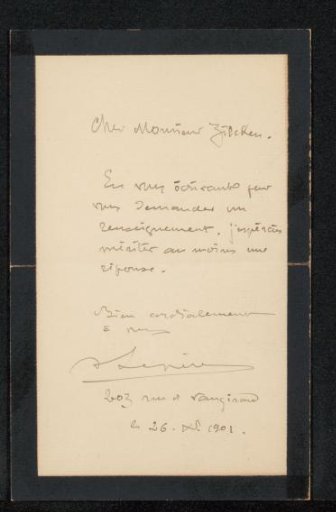 Cher Monsieur Zilcken.
En vous écrivant pour
vous demander un
renseignement. j'espérais
mériter au moins une
réponse.
Bien cordialement
à vous
A Lepère
203 rue de Vaugirard
le 26. 1901.